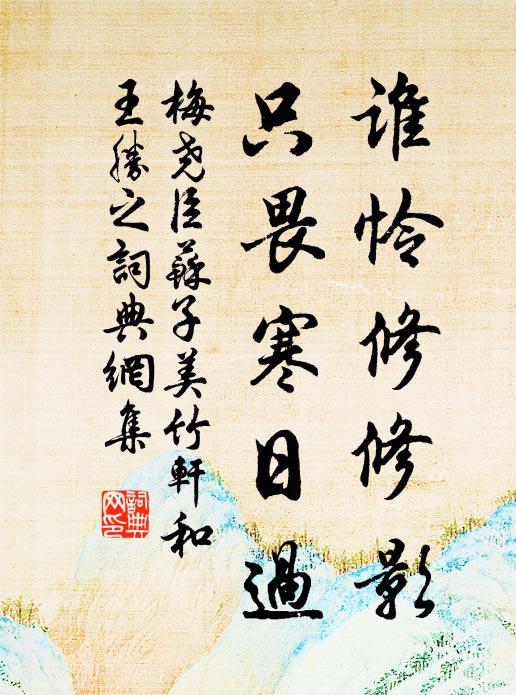 谁怜修修影
只畏寒日過
梅尧臣蘇子美竹軒和
王勝之詞典網集
詞典網印